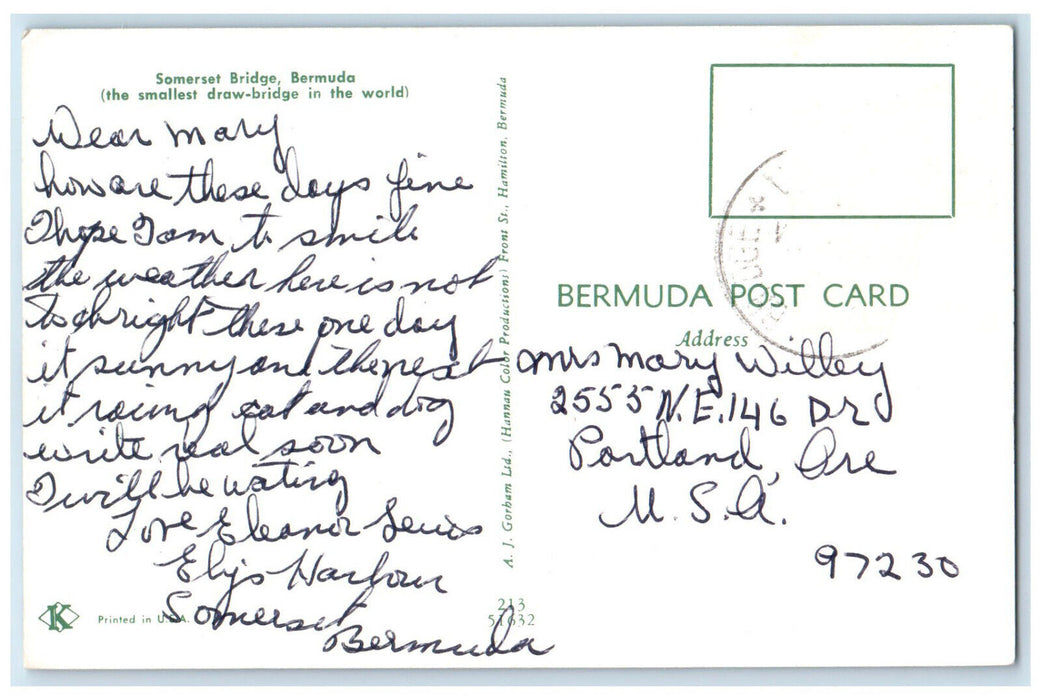 Somerset Bridge, Bermuda
(the smallest draw-bridge in the world)
Dear Mary
how are these days fine
I hope Iam to smile
the weather here is not
to bright these one day
it sunny and the next
it racing cat and dog
write real soon
I will be wating
Love Eleanor Lewis
Elys Harbour
Somerset
Bermuda
K
Printed in U.S.A.
A. J. Gorham Ltd., (Hannau Color Productions) Front St., Hamilton, Bermuda
213
51632
BERMUDA POST CARD
Address
Mrs Mary Willey
2555 N.E. 146 DR
Portland, Ore
U.S.A.
97230